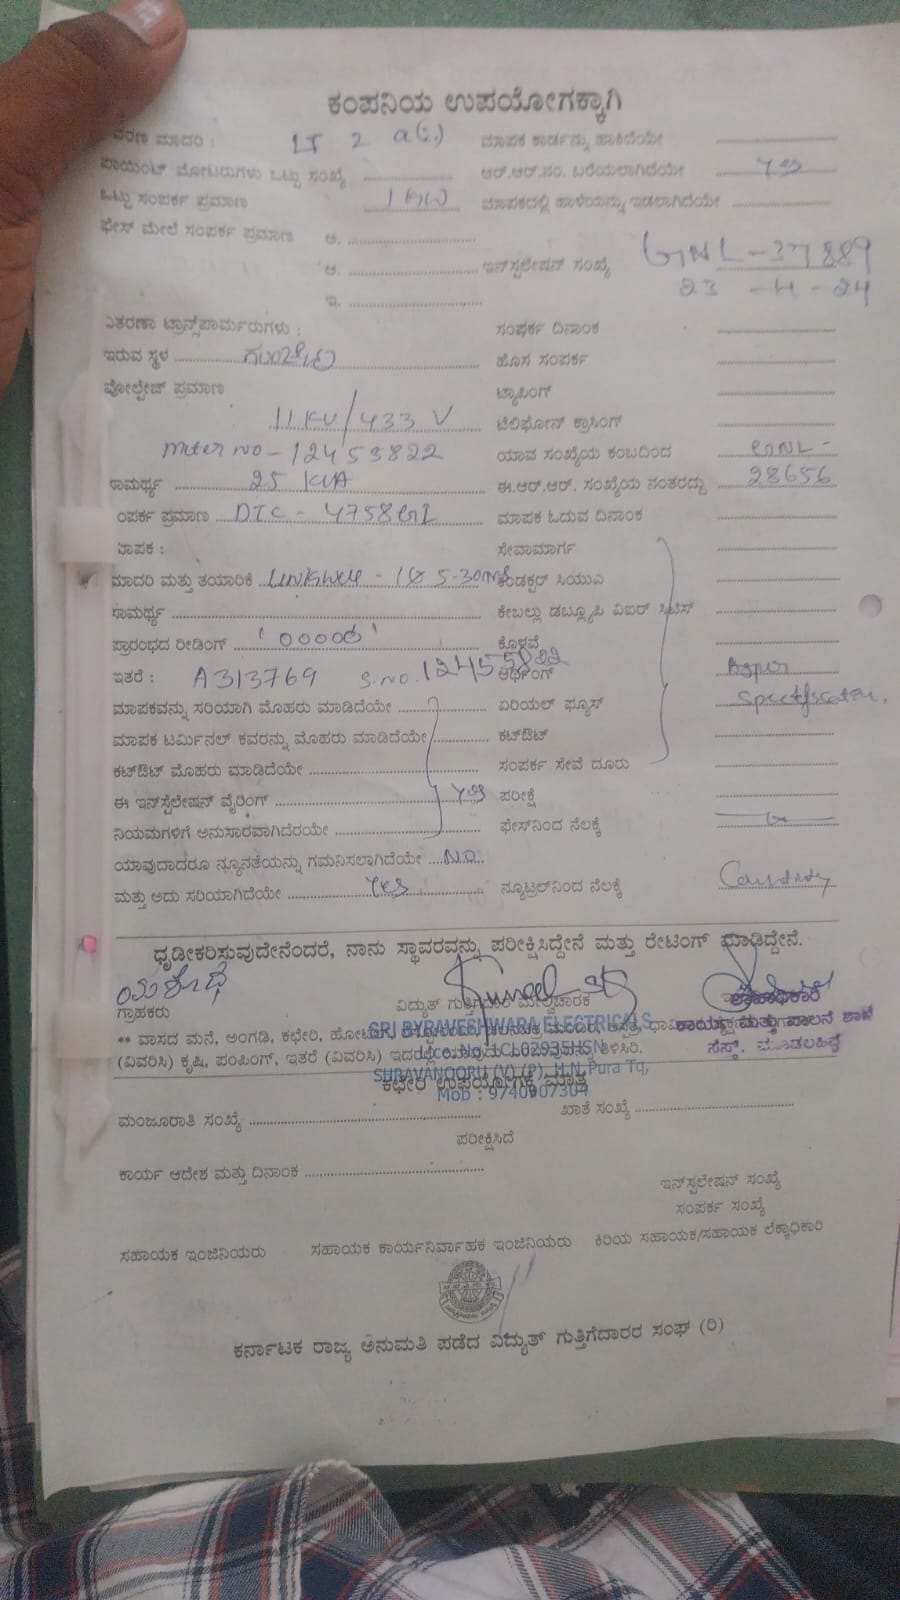 ಕಂಪನಿಯ ಉಪಯೋಗಕ್ಕಾಗಿ
ಮಾದರಿ : LT 2 a(i) ಮಾಪಕ ಕಾರ್ಡನ್ನು ಹಾಕಿದೆಯೇ
ಪಾಯಿಂಟ್ ಮೋಟರುಗಳು ಒಟ್ಟು ಸಂಖ್ಯೆ ಆರ್.ಆರ್.ನಂ. ಬರೆಯಲಾಗಿದೆಯೇ
ಒಟ್ಟು ಸಂಪರ್ಕ ಪ್ರಮಾಣ 1 KW ಮಾಪಕದಲ್ಲಿ ಹಾಳೆಯನ್ನು ಇಡಲಾಗಿದೆಯೇ
ಫೇಸ್ ಮೇಲೆ ಸಂಪರ್ಕ ಪ್ರಮಾಣ ಅ.
ಆ. ಇನ್‌ಸ್ಟಲೇಷನ್ ಸಂಖ್ಯೆ GNL-37889
ಇ. 23 -4-24
ವಿತರಣಾ ಟ್ರಾನ್ಸ್‌ಫಾರ್ಮರುಗಳು : ಸಂಪರ್ಕ ದಿನಾಂಕ
ಇರುವ ಸ್ಥಳ ಹೊಸ ಸಂಪರ್ಕ
ವೋಲ್ಟೇಜ್ ಪ್ರಮಾಣ ಟ್ಯಾಪಿಂಗ್
11 KV/433 V ಟೆಲಿಫೋನ್ ಕ್ರಾಸಿಂಗ್
meter no-12455822 ಯಾವ ಸಂಖ್ಯೆಯ ಕಂಬದಿಂದ GNL-
ಸಾಮರ್ಥ್ಯ 25 KVA ಈ.ಆರ್.ಆರ್. ಸಂಖ್ಯೆಯ ನಂತರದ್ದು 28656
ಸಂಪರ್ಕ ಪ್ರಮಾಣ DTC - 4758 ಮಾಪಕ ಓದುವ ದಿನಾಂಕ
ಮಾಪಕ : ಸೇವಾಮಾರ್ಗ
ಮಾದರಿ ಮತ್ತು ತಯಾರಿಕೆ 5-30 ಕಂಡಕ್ಟರ್ ಸಿಯುವಿ
ಸಾಮರ್ಥ್ಯ ಕೇಬಲ್ಲು ಡಬ್ಲ್ಯೂಪಿ ವಿಐರ್
ಪ್ರಾರಂಭದ ರೀಡಿಂಗ್ '00000' ಕೊಳವೆ
ಇತರೆ : A313769 S.no.12455822 ಅರ್ಥಿಂಗ್ Asper
ಮಾಪಕವನ್ನು ಸರಿಯಾಗಿ ಮೊಹರು ಮಾಡಿದೆಯೇ ಏರಿಯಲ್ ಫ್ಯೂಸ್
ಮಾಪಕ ಟರ್ಮಿನಲ್ ಕವರನ್ನು ಮೊಹರು ಮಾಡಿದೆಯೇ ಕಟ್‌ಔಟ್
ಕಟ್‌ಔಟ್ ಮೊಹರು ಮಾಡಿದೆಯೇ ಸಂಪರ್ಕ ಸೇವೆ ದೂರು
ಈ ಇನ್‌ಸ್ಟಲೇಷನ್ ವೈರಿಂಗ್ ಪರೀಕ್ಷೆ
ನಿಯಮಗಳಿಗೆ ಅನುಸಾರವಾಗಿದೆಯೇ ಫೇಸ್‌ನಿಂದ ನೆಲಕ್ಕೆ
ಯಾವುದಾದರೂ ನ್ಯೂನತೆಯನ್ನು ಗಮನಿಸಲಾಗಿದೆಯೇ NO
ಮತ್ತು ಅದು ಸರಿಯಾಗಿದೆಯೇ Yes ನ್ಯೂಟ್ರಲ್‌ನಿಂದ ನೆಲಕ್ಕೆ
ಧೃಡೀಕರಿಸುವುದೇನೆಂದರೆ, ನಾನು ಸ್ಥಾವರವನ್ನು ಪರೀಕ್ಷಿಸಿದ್ದೇನೆ ಮತ್ತು ರೇಟಿಂಗ್ ಮಾಡಿದ್ದೇನೆ.
ಯಶೋಧೆ
ಗ್ರಾಹಕರು ವಿದ್ಯುತ್ ಗುತ್ತಿಗೆದಾರರ ಮೇಲ್ವಿಚಾರಕ ಶಾಖಾಧಿಕಾರಿ
SRI BYRAVESHWARA ELECTRICALS
ಕಾರ್ಯ ಮತ್ತು ಪಾಲನೆ ಶಾಖೆ
** ವಾಸದ ಮನೆ, ಅಂಗಡಿ, ಕಛೇರಿ,
ಸೆಸ್ಕ್,
(ವಿವರಿಸಿ) ಕೃಷಿ, ಪಂಪಿಂಗ್, ಇತರೆ (ವಿವರಿಸಿ)
SURAVANOORU (V) (P), H.N.Pura Tq,
ಕಛೇರಿ ಉಪಯೋಗಕ್ಕೆ ಮಾತ್ರ
Mob : 9740907304
ಮಂಜೂರಾತಿ ಸಂಖ್ಯೆ ಖಾತೆ ಸಂಖ್ಯೆ
ಪರೀಕ್ಷಿಸಿದೆ
ಕಾರ್ಯ ಆದೇಶ ಮತ್ತು ದಿನಾಂಕ
ಇನ್‌ಸ್ಟಲೇಷನ್ ಸಂಖ್ಯೆ
ಸಂಪರ್ಕ ಸಂಖ್ಯೆ
ಸಹಾಯಕ ಇಂಜಿನಿಯರು ಸಹಾಯಕ ಕಾರ್ಯನಿರ್ವಾಹಕ ಇಂಜಿನಿಯರು ಕಿರಿಯ ಸಹಾಯಕ/ಸಹಾಯಕ ಲೆಕ್ಕಾಧಿಕಾರಿ
ಕರ್ನಾಟಕ ರಾಜ್ಯ ಅನುಮತಿ ಪಡೆದ ವಿದ್ಯುತ್ ಗುತ್ತಿಗೆದಾರರ ಸಂಘ (ರಿ)